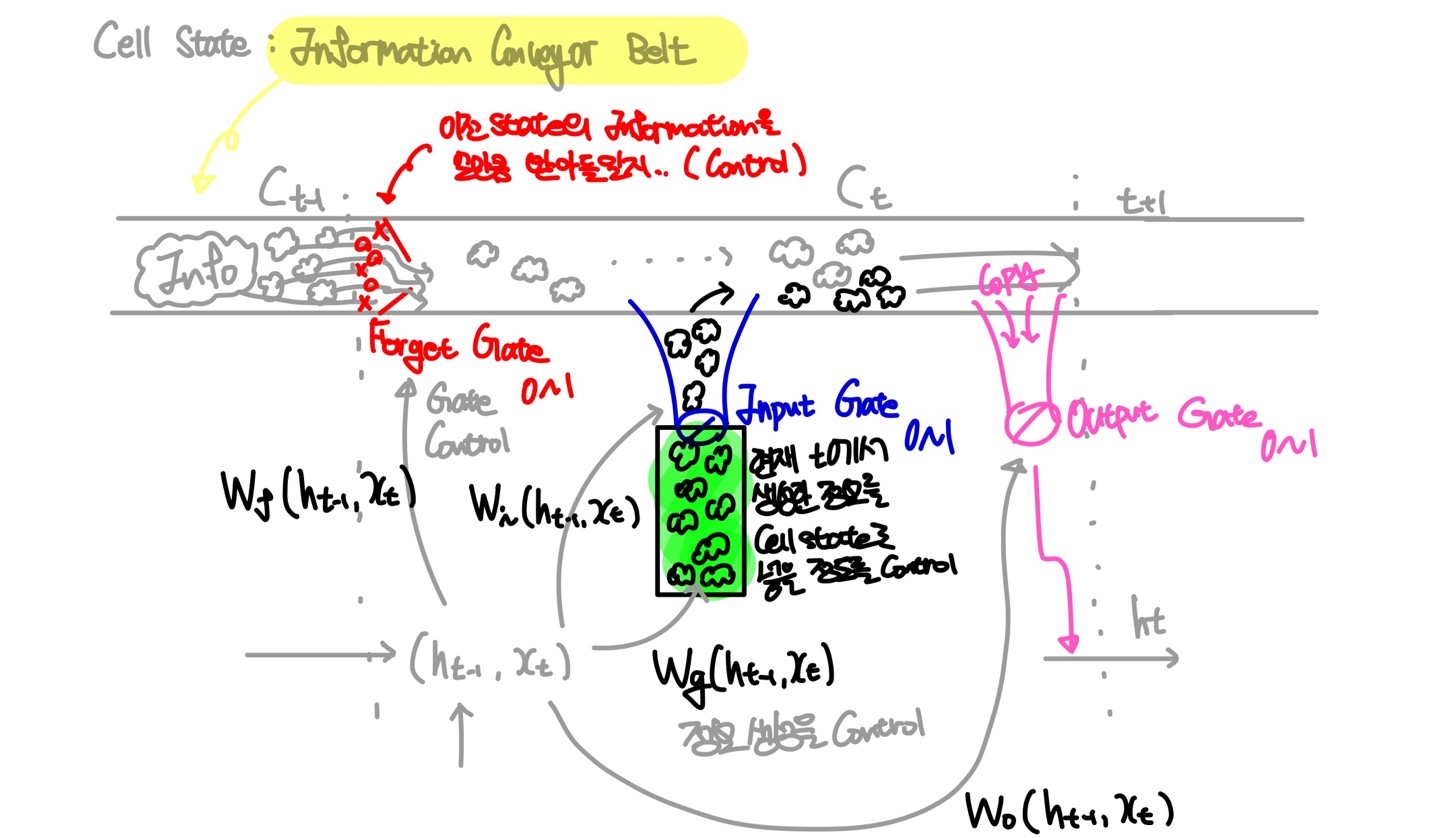 Cell State : Information Conveyor Belt
이전 state의 Information을
얼만큼 받아들일지.. (Control)
Ct-1
Ct
t+1
Info
Copy
Forget Gate
0~1
Gate
Control
Input Gate
0~1
Output Gate
0~1
현재 t에서
생성한 정보를
Cell state로
넣을 정도를 Control
Wf(ht-1, xt)
Win(ht-1, xt)
(ht-1, xt)
ht
Wg(ht-1, xt)
정보 생성을 Control
Wo(ht-1, xt)